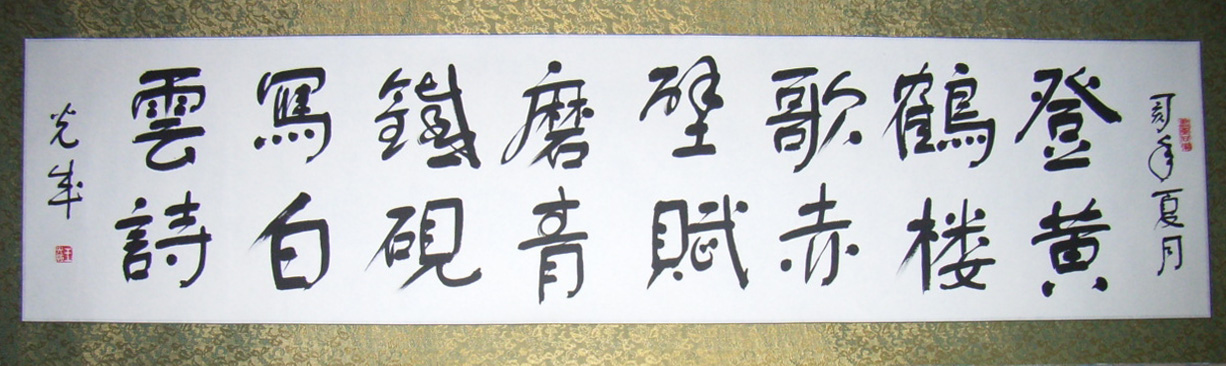 丁亥年夏月
登黄
鶴楼
歌赤
壁賦
磨青
鐵硯
寫白
雲詩
光成